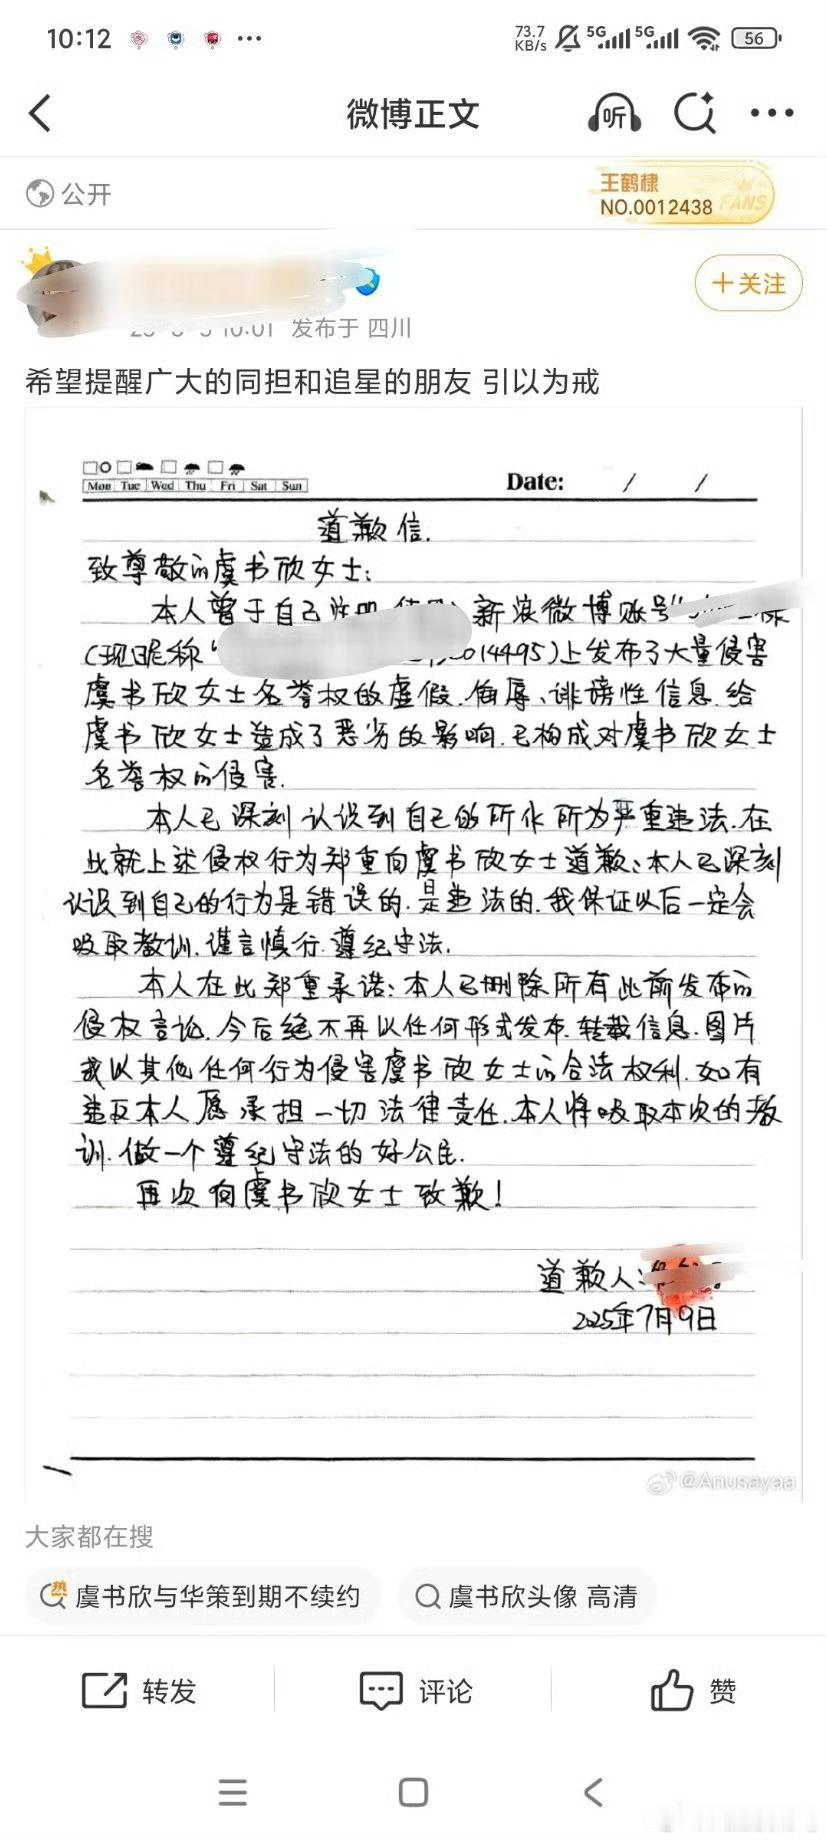 10:12
73.7
KB/s
5G
5G
56
微博正文
听
公开
王鹤棣
NO.0012438
FANS
+关注
10:01 发布于 四川
希望提醒广大的同担和追星的朋友 引以为戒
Mon Tue Wed Thu Fri Sat Sun
Date: / /
道歉信.
致尊敬的虞书欣女士:
本人曾于自己注册 新浪微博账号"
(现昵称" 014495)上发布了大量侵害
虞书欣女士名誉权的虚假.侮辱、诽谤性信息.给
虞书欣女士造成了恶劣的影响.已构成对虞书欣女士
名誉权的侵害.
本人已深刻认识到自己的所作所为严重违法.在
此就上述侵权行为郑重向虞书欣女士道歉:本人已深刻
认识到自己的行为是错误的.是违法的.我保证以后一定会
吸取教训.谨言慎行.遵纪守法.
本人在此郑重承诺:本人已删除所有此前发布的
侵权言论.今后绝不再以任何形式发布.转载信息.图片
或以其他任何行为侵害虞书欣女士的合法权利.如有
违反本人愿承担一切法律责任.本人将吸取本次的教
训.做一个遵纪守法的好公民.
再次向虞书欣女士致歉!
道歉人:
2025年7月9日
@Anusayaa
大家都在搜
热
虞书欣与华策到期不续约
虞书欣头像 高清
转发
评论
赞